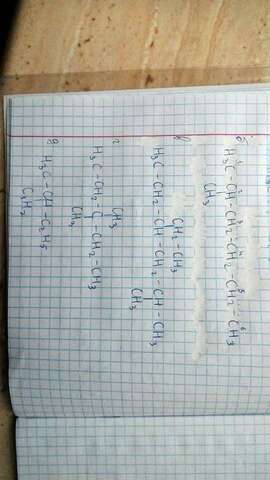 б H₃C¹-CH²-CH₂³-CH₂⁴-CH₂⁵-CH₃⁶
CH₃
CH₂-CH₃
в H₃C-CH₂-CH-CH₂-CH-CH₃
CH₃
CH₃
г H₃C-CH₂-C-CH₂-CH₃
CH₃
д H₃C-CH-C₂H₅